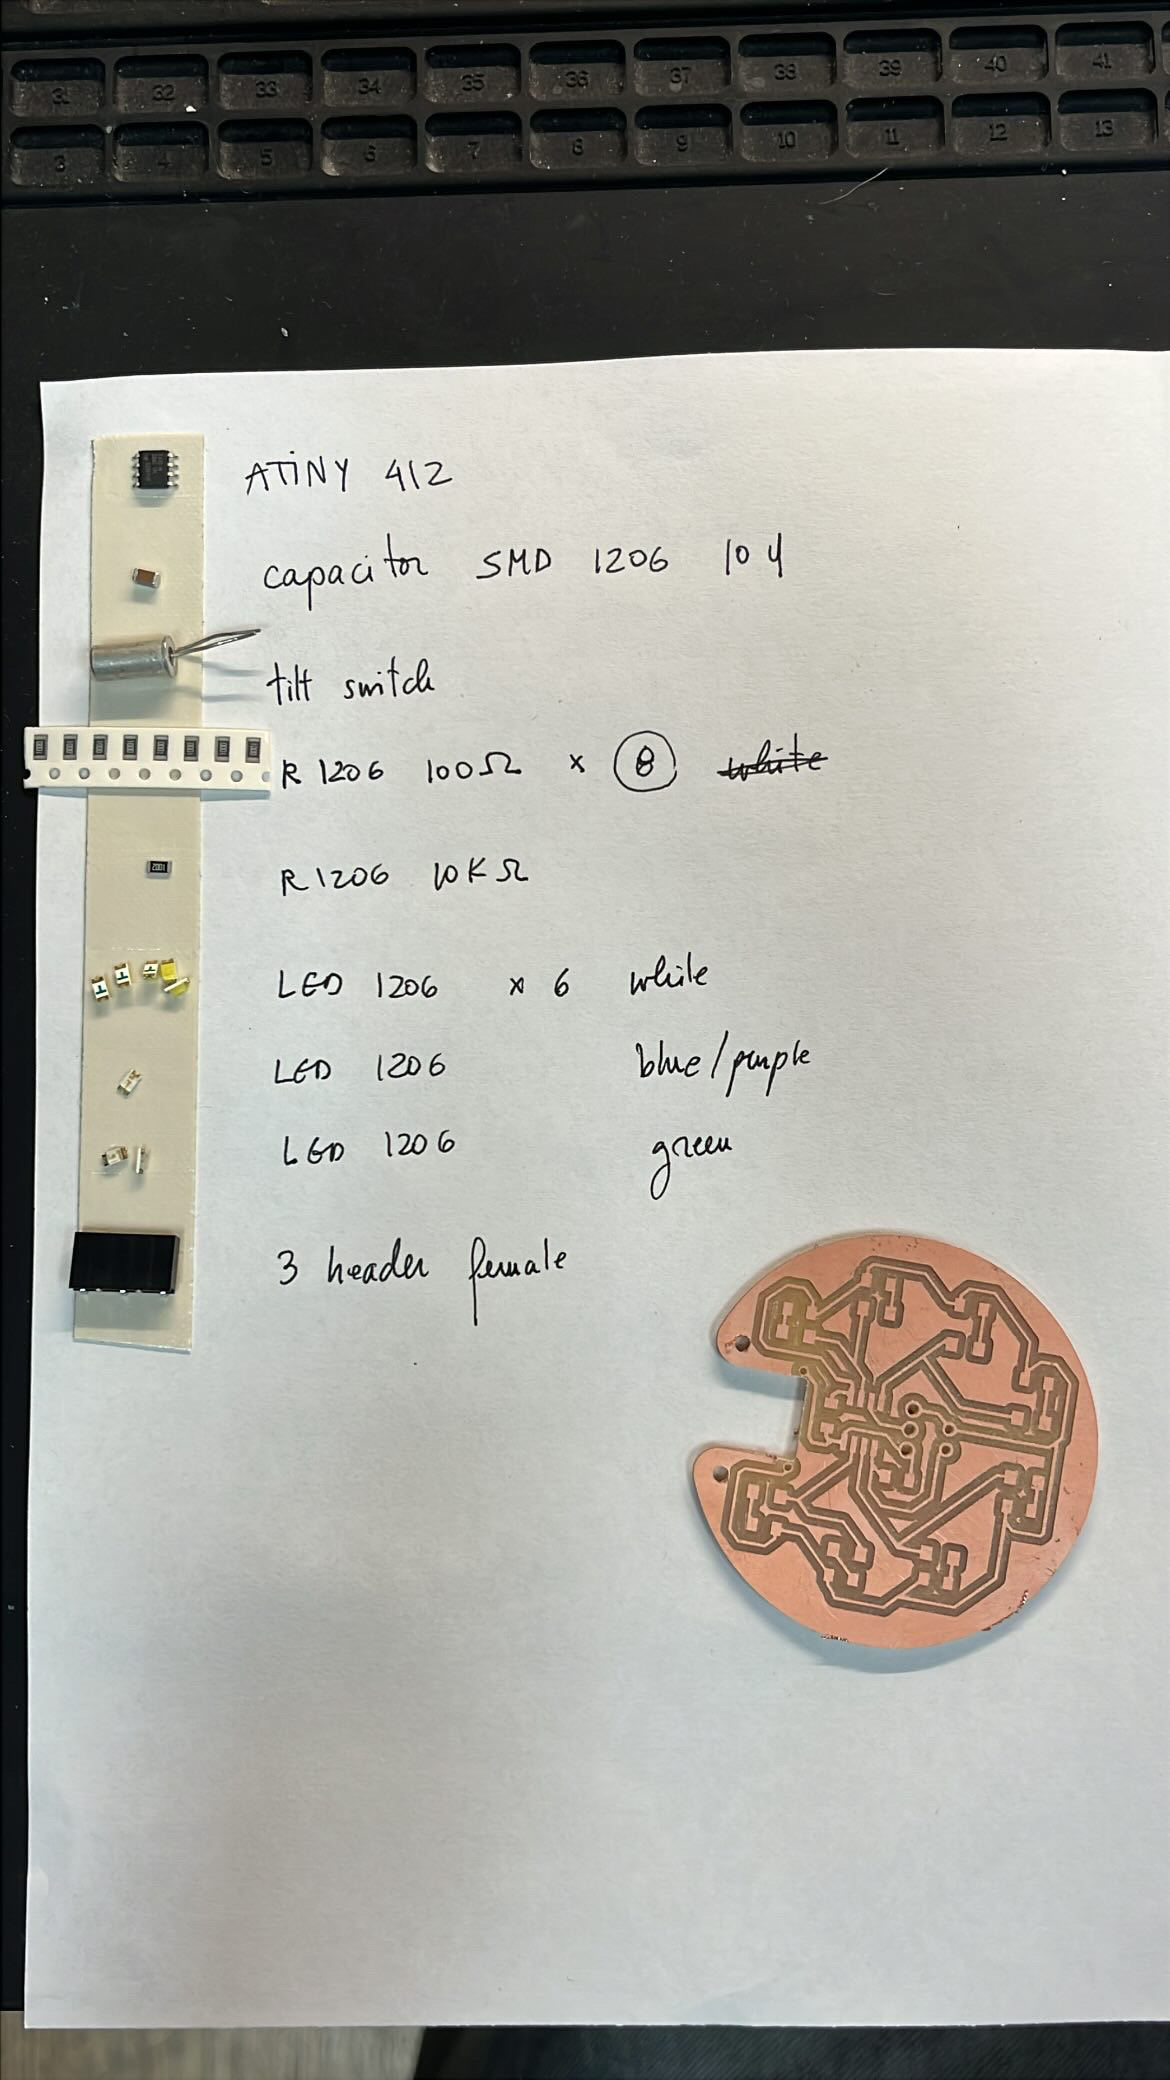 31 32 33 34 35 36 37 38 39 40 41
3 4 5 6 7 8 9 10 11 12 13
ATiNY 412
capacitor SMD 1206 104
tilt switch
R 1206 100Ω x 8 white
R 1206 10KΩ
2001
LED 1206 x 6 white
LED 1206 blue/purple
LED 1206 green
3 header female